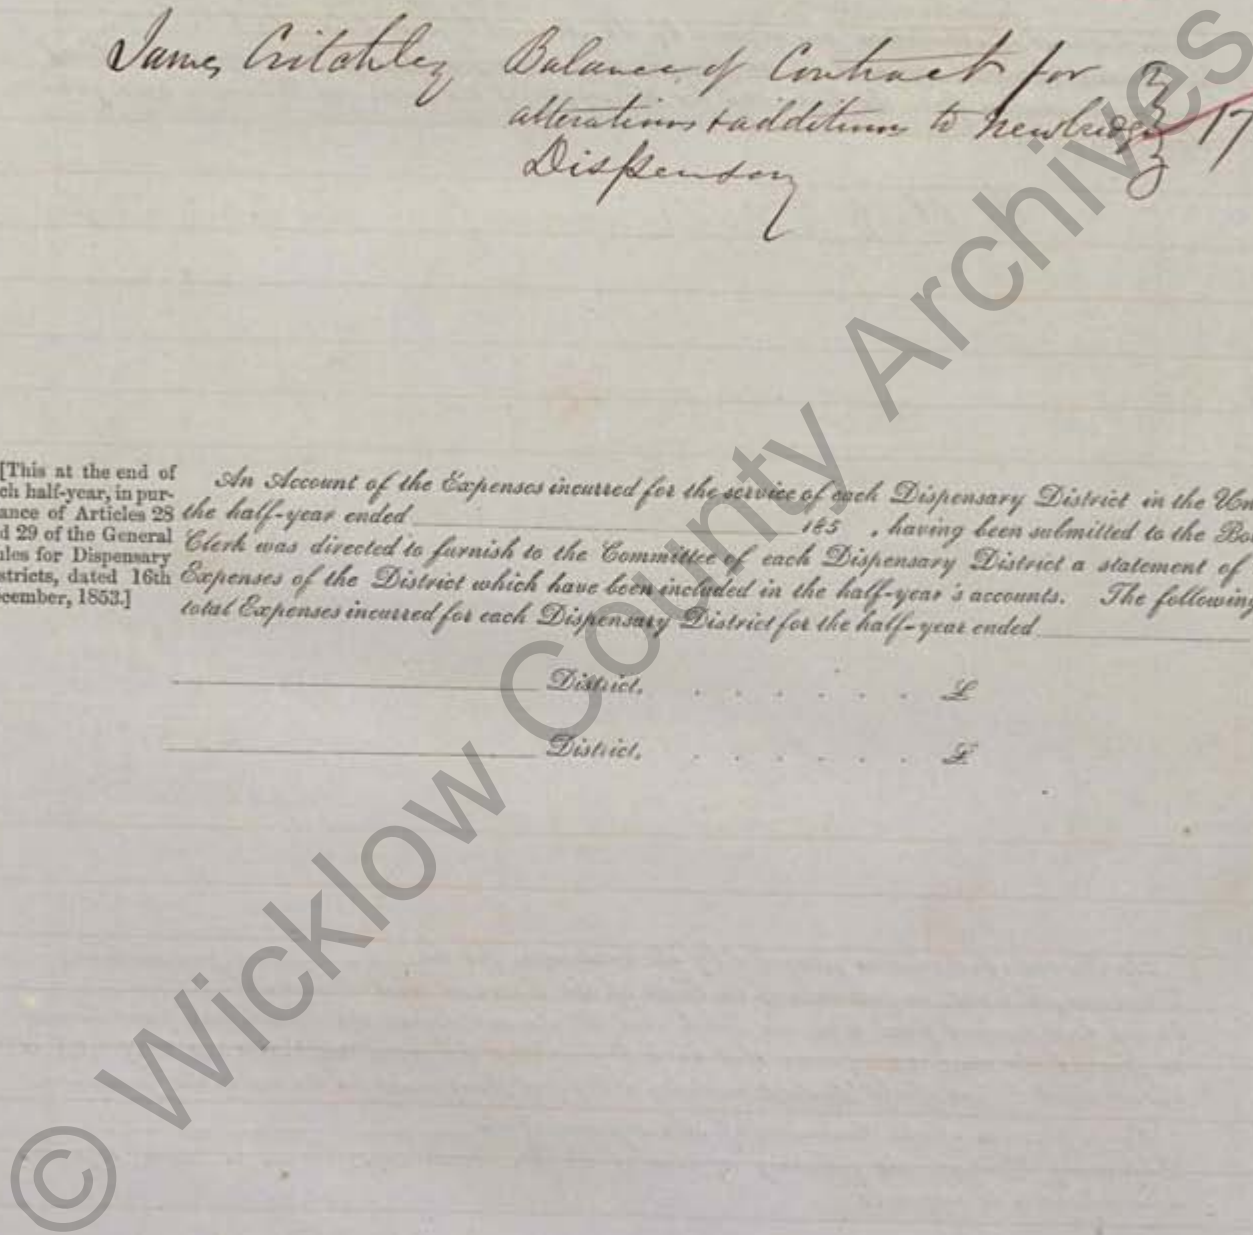 James Critchley Balance of Contract for
alterations & additions to Newbridge 17
Dispensary
[This at the end of
ch half-year, in pur-
ance of Articles 28
d 29 of the General
ules for Dispensary
stricts, dated 16th
cember, 1853.]
An Account of the Expenses incurred for the service of each Dispensary District in the Un
the half-year ended 185 , having been submitted to the Bo
Clerk was directed to furnish to the Committee of each Dispensary District a statement of
Expenses of the District which have been included in the half-year's accounts. The following
total Expenses incurred for each Dispensary District for the half-year ended
District. . . . . . . £
District. . . . . . . £
© Wicklow County Archives